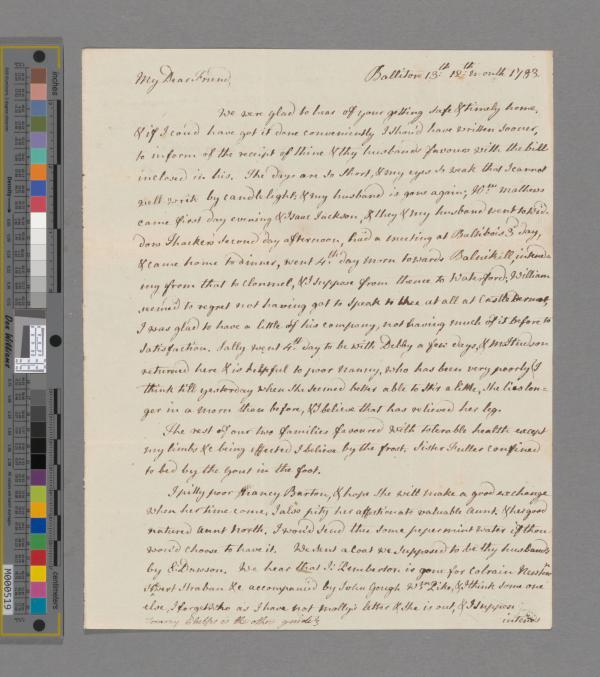 My Dear Friend,
Ballitore 13th 12th month 1783
We were glad to hear of your getting safe & timely home,
& if I coud have got it done conveniently I shoud have written sooner,
to inform of the receipt of thine & thy husbands favours with the bill
inclosed in his. The days are so short, & my eyes so weak that I cannot
well write by candlelight, & my husband is gone again; Wm mathews
came first day evening & Isaac Jackson, & they & my husband went to Wid-
dow Thackers second day afternoon, had a meeting at Baltibois 3d day,
& came home to dinner, went 4th day morn towards Balnikill, intend-
ing from that to Clonmel, & I suppose from thence to Waterford, William
seem'd to regret not having got to speak to thee at all at Castledermot,
I was glad to have a little of his company, not having much of it before to
satisfaction. Sally went 4th day to be with Debby a few days, &
returned here & is helpful to poor nanny, who has been very poorly I
think till yesterday when she seemed better able to stir a little, she lies lon-
ger in a morn than before, & I believe that has relieved her leg.
The rest of our two families favoured with tolerable health except
my limbs &c being affected I believe by the frost. Sister Fuller confined
to bed by the gout in the foot.
I pitty poor Nancy Barton, & hope she will make a good exchange
when her time come, I also pity her affectionate valuable Aunt. & her good
natured Aunt North. I would send thee some pepermint water if thou
would choose to have it. We sent a Coat we supposed to be thy husbands
by E: Dawson. We hear that Js: Pemberton is gone for Colrain
Robert Straban &c accompanied by John Gough Wm Pike, & I think some one
else, I forget who as I have not molly's letter & she is out, & I suppose
Tommy Phelps is the other guide
intends
inches
centimeters
Density
Don Williams
M000519